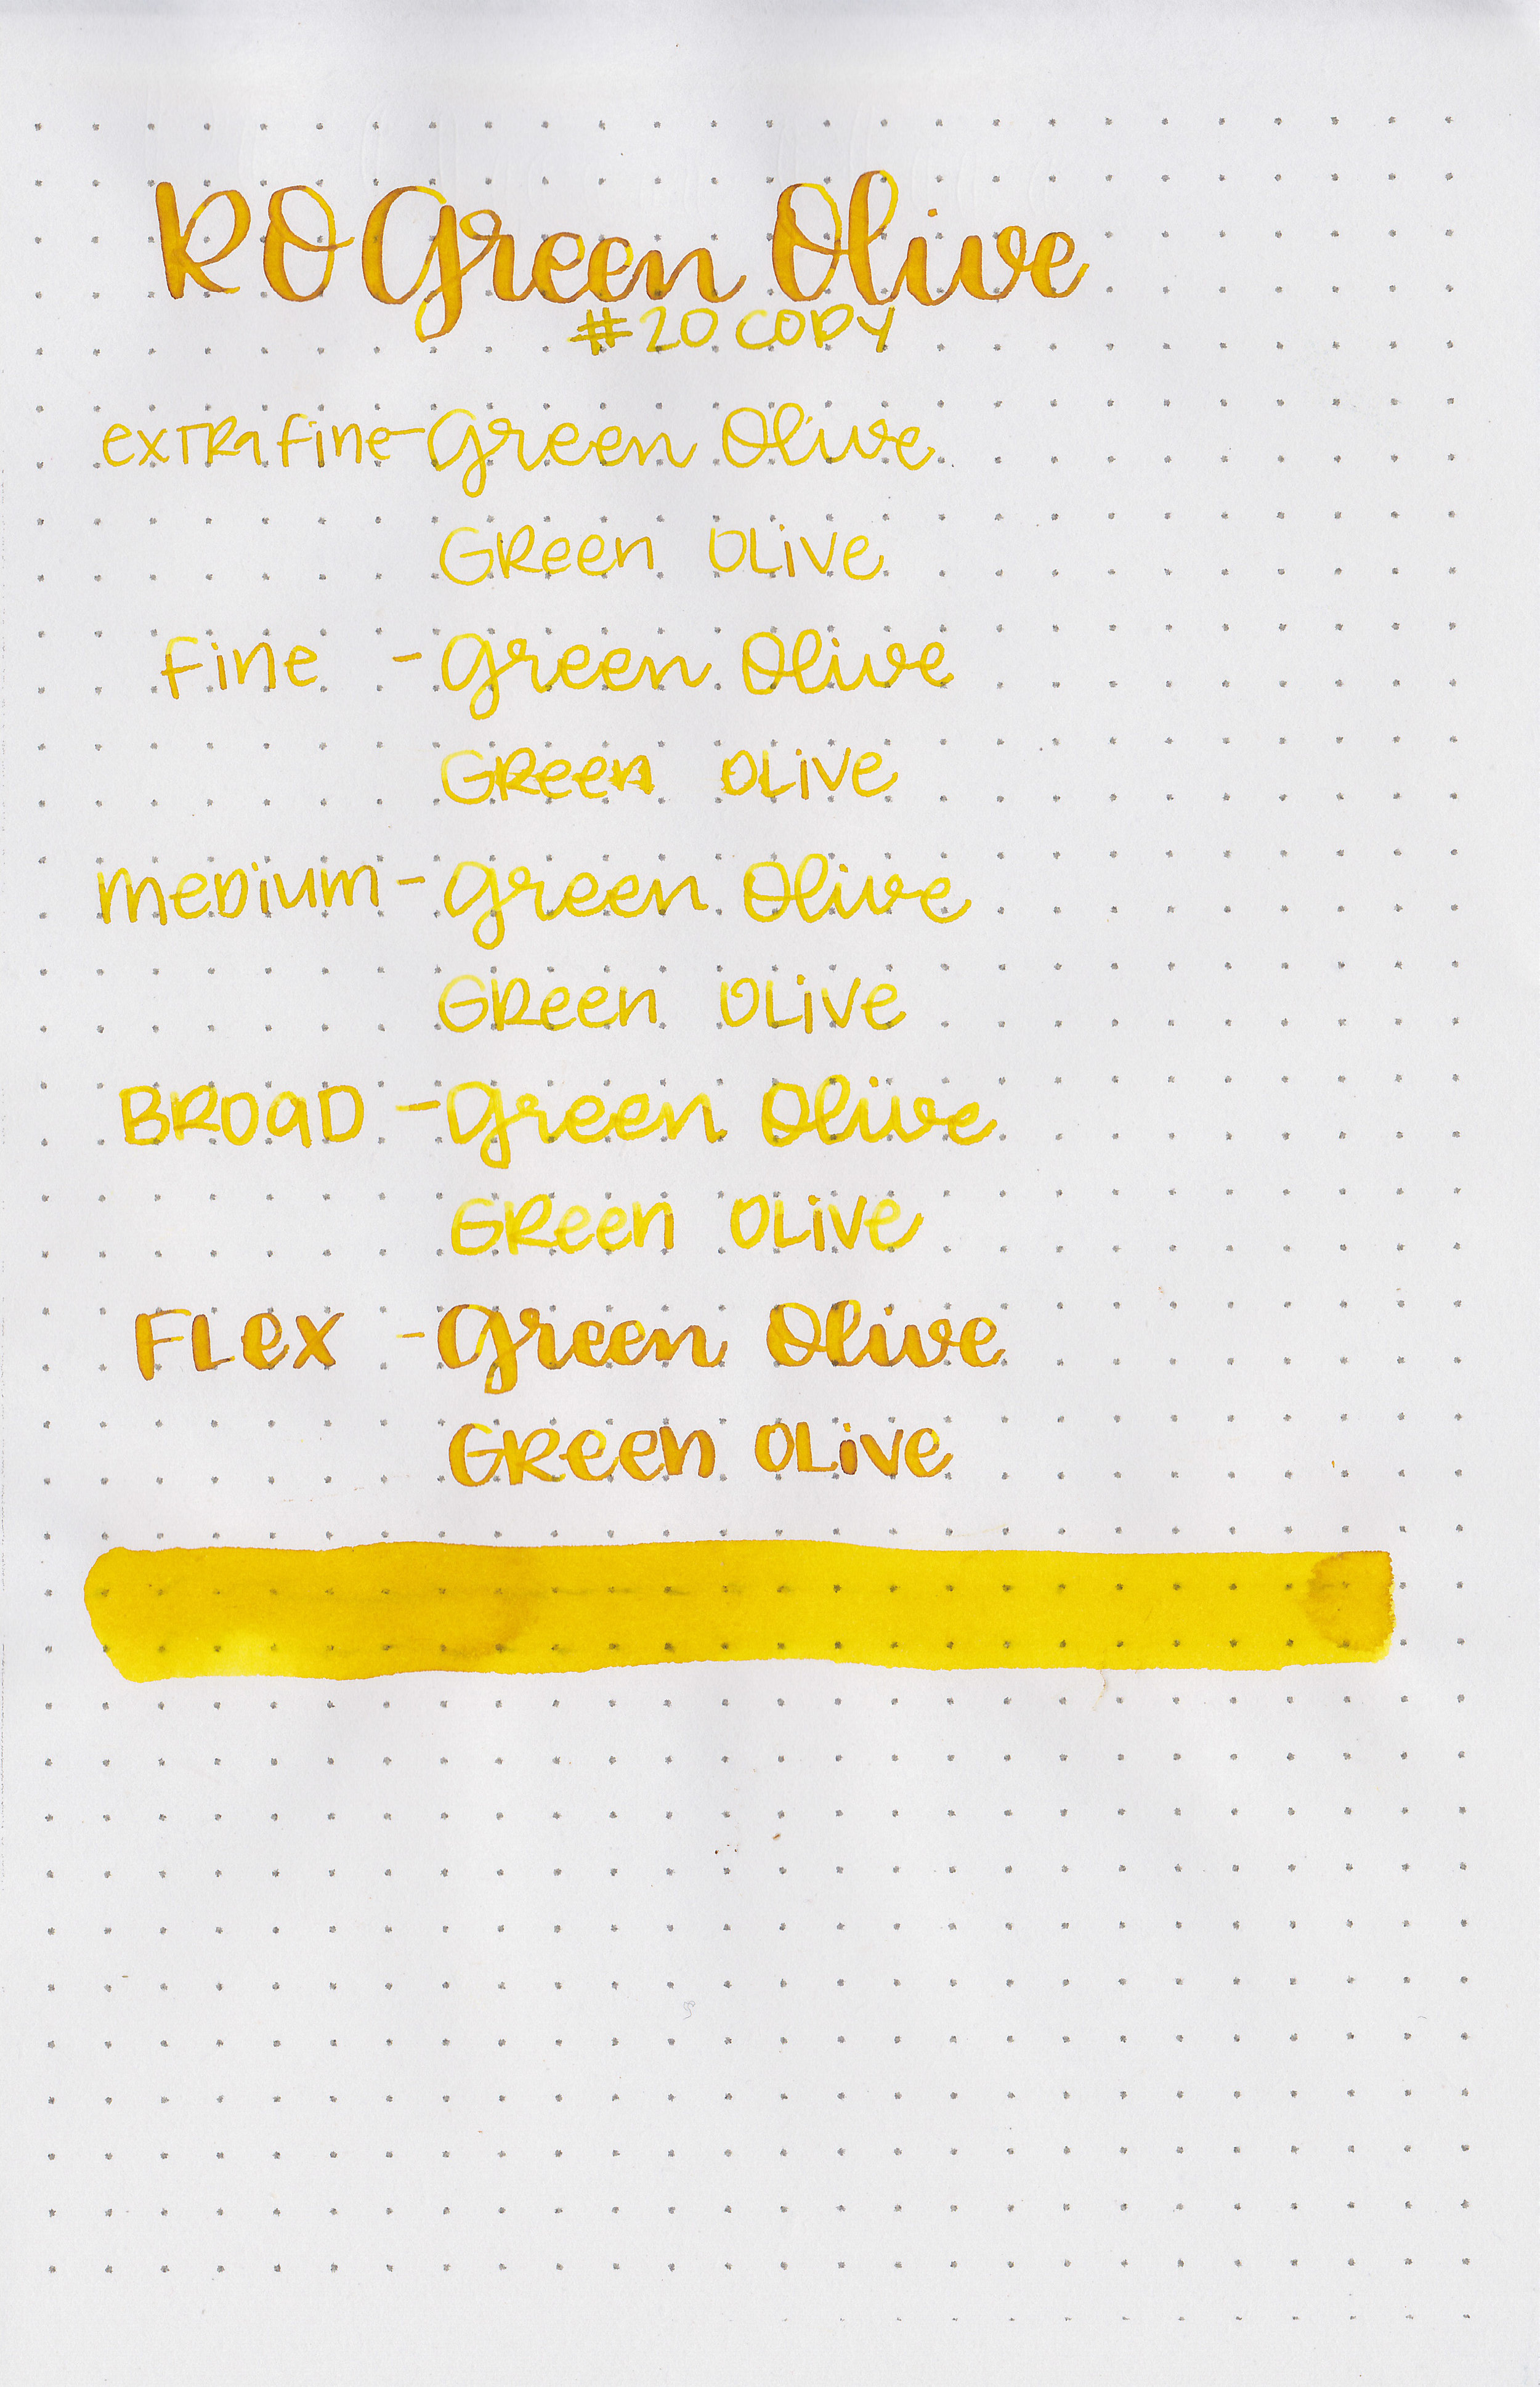 RO Green Olive
#20 COPY
extra fine - Green Olive
Green Olive
Fine - Green Olive
Green Olive
Medium - Green Olive
Green Olive
Broad - Green Olive
Green Olive
Flex - Green Olive
Green Olive